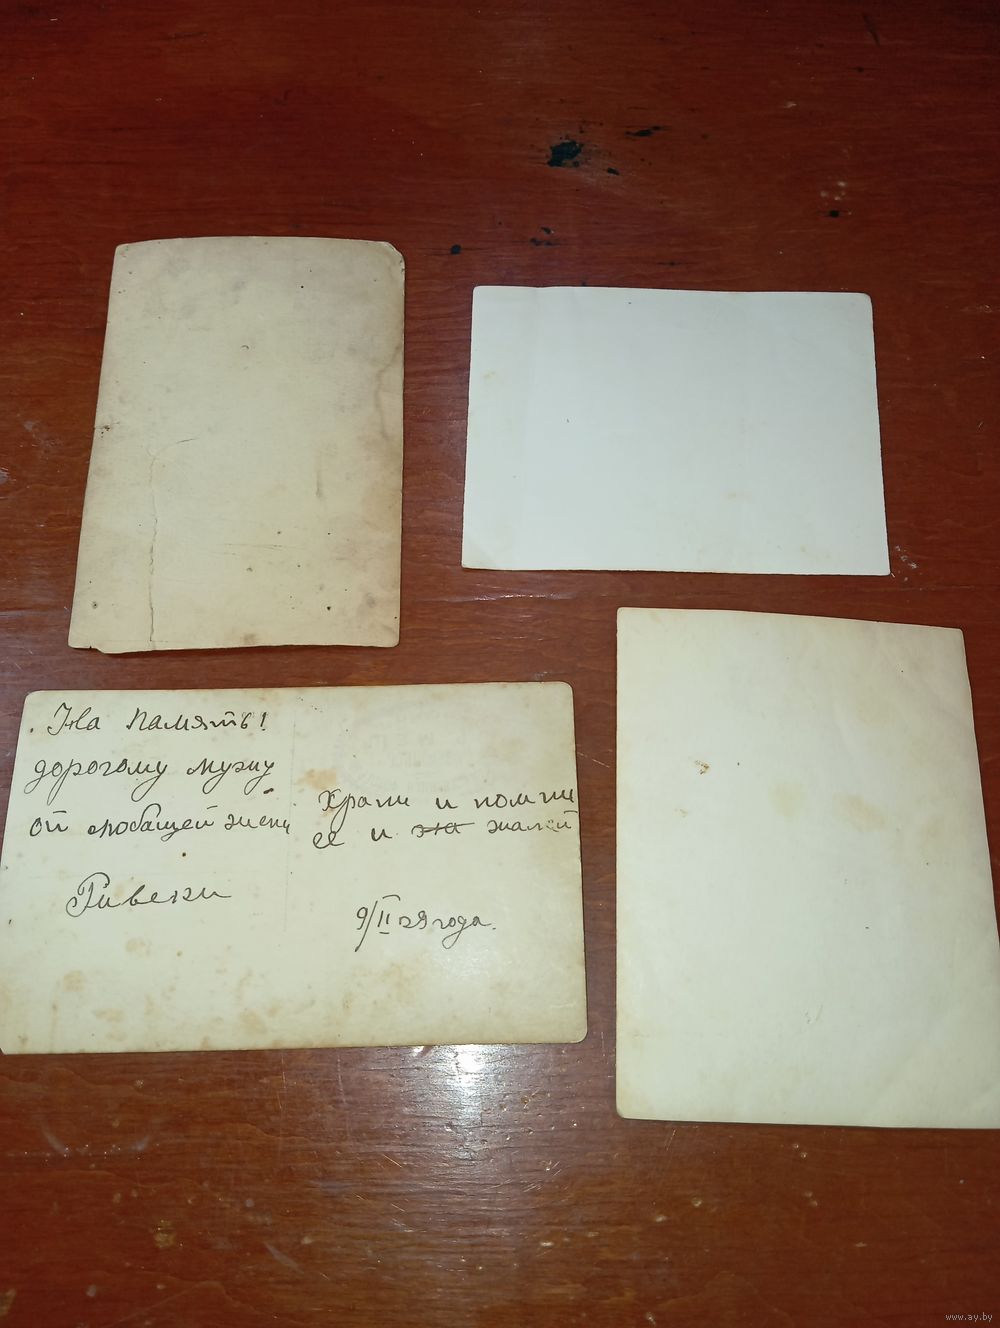 На память!
дорогому мужу
от любящей жены
Ривеки
Храни и помни
ее и эта жалей
9/II 29 года.
www.ay.by